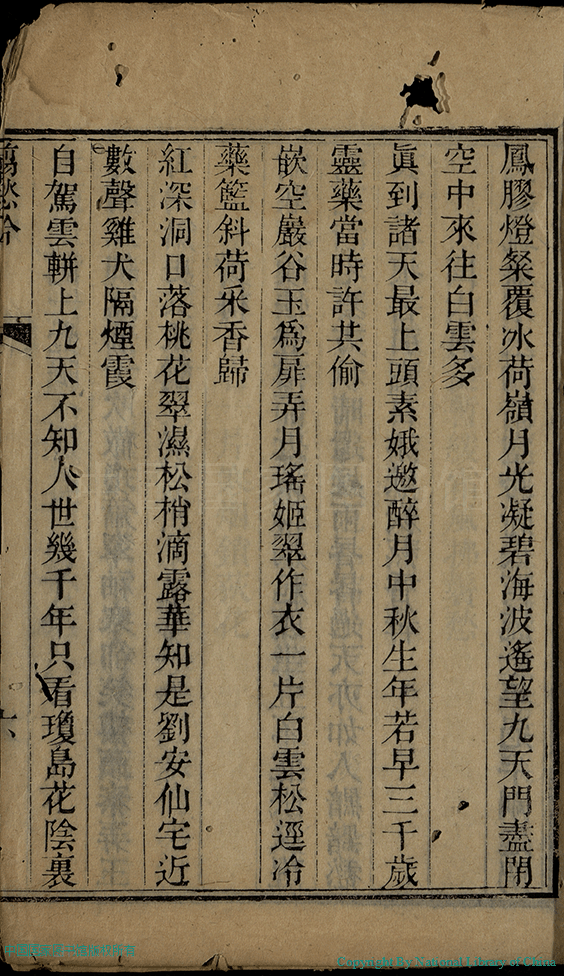 鳳膠燈粲覆冰荷嶺月光凝碧海波遙望九天門盡閉
空中來往白雲多
眞到諸天最上頭素娥邀醉月中秋生年若早三千歲
靈藥當時許其偷
嵌空巖谷玉爲扉弄月瑤姬翠作衣一片白雲松逕冷
藥籃斜荷采香歸
紅深洞口落桃花翠濕松梢滴露華知是劉安仙宅近
數聲雞犬隔煙霞
自駕雲軿上九天不知人世幾千年只看瓊島花陰裏
六
Copyright by National Library of China